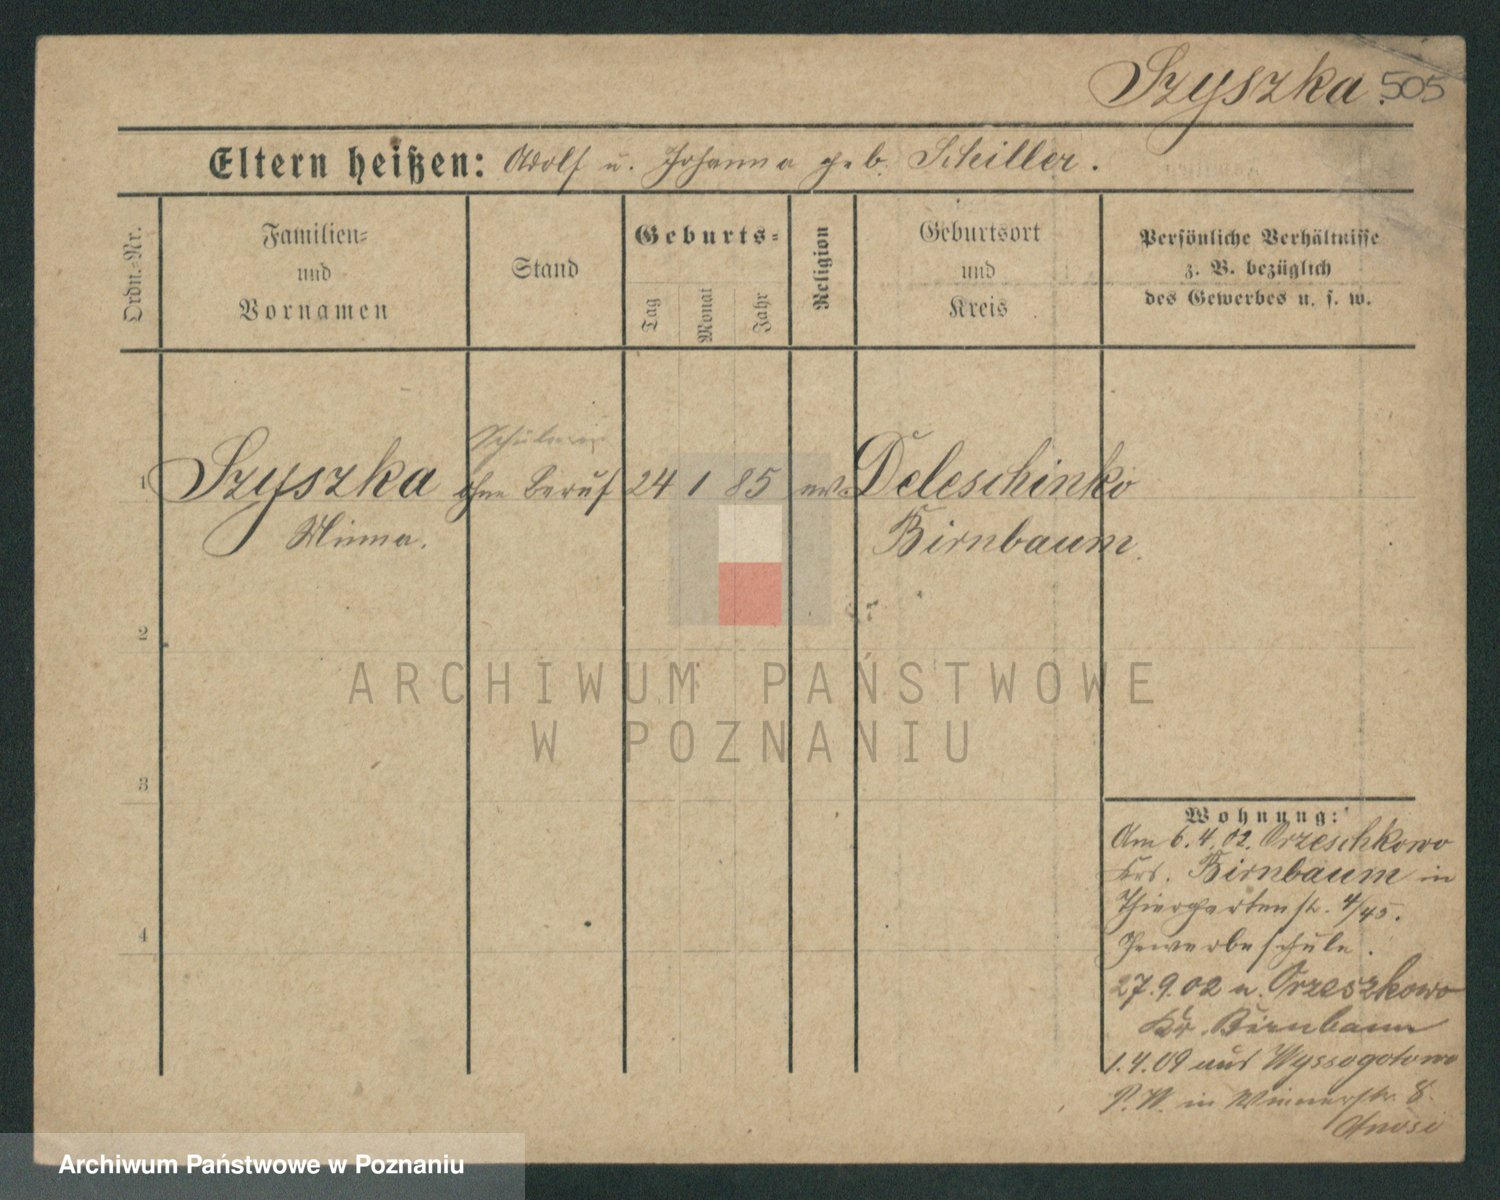 Szyszka 505
Eltern heißen: Adolf u. Johanna geb. Schiller.
Ordn.=Nr.
Familien=
und
Vornamen
Stand
Geburts=
Tag
Monat
Jahr
Religion
Geburtsort
und
Kreis
Persönliche Verhältnisse
z. B. bezüglich
des Gewerbes u. s. w.
Schülerin
1 Szyszka ohne Beruf 24 1 85 ev. Deleschinko
Minna. Birnbaum
2
3
4
ARCHIWUM PAŃSTWOWE
W POZNANIU
Wohnung:
Am 6.4.02. Orzeschkowo
Krs. Birnbaum in
Thiergartenstr. 4/45.
Gewerbeschule.
27.9.02 n. Orzeszkowo
Kr. Birnbaum
1.4.09 aus Wyssogotowo
P.W. in Wienerstr. 8.
Archiwum Państwowe w Poznaniu